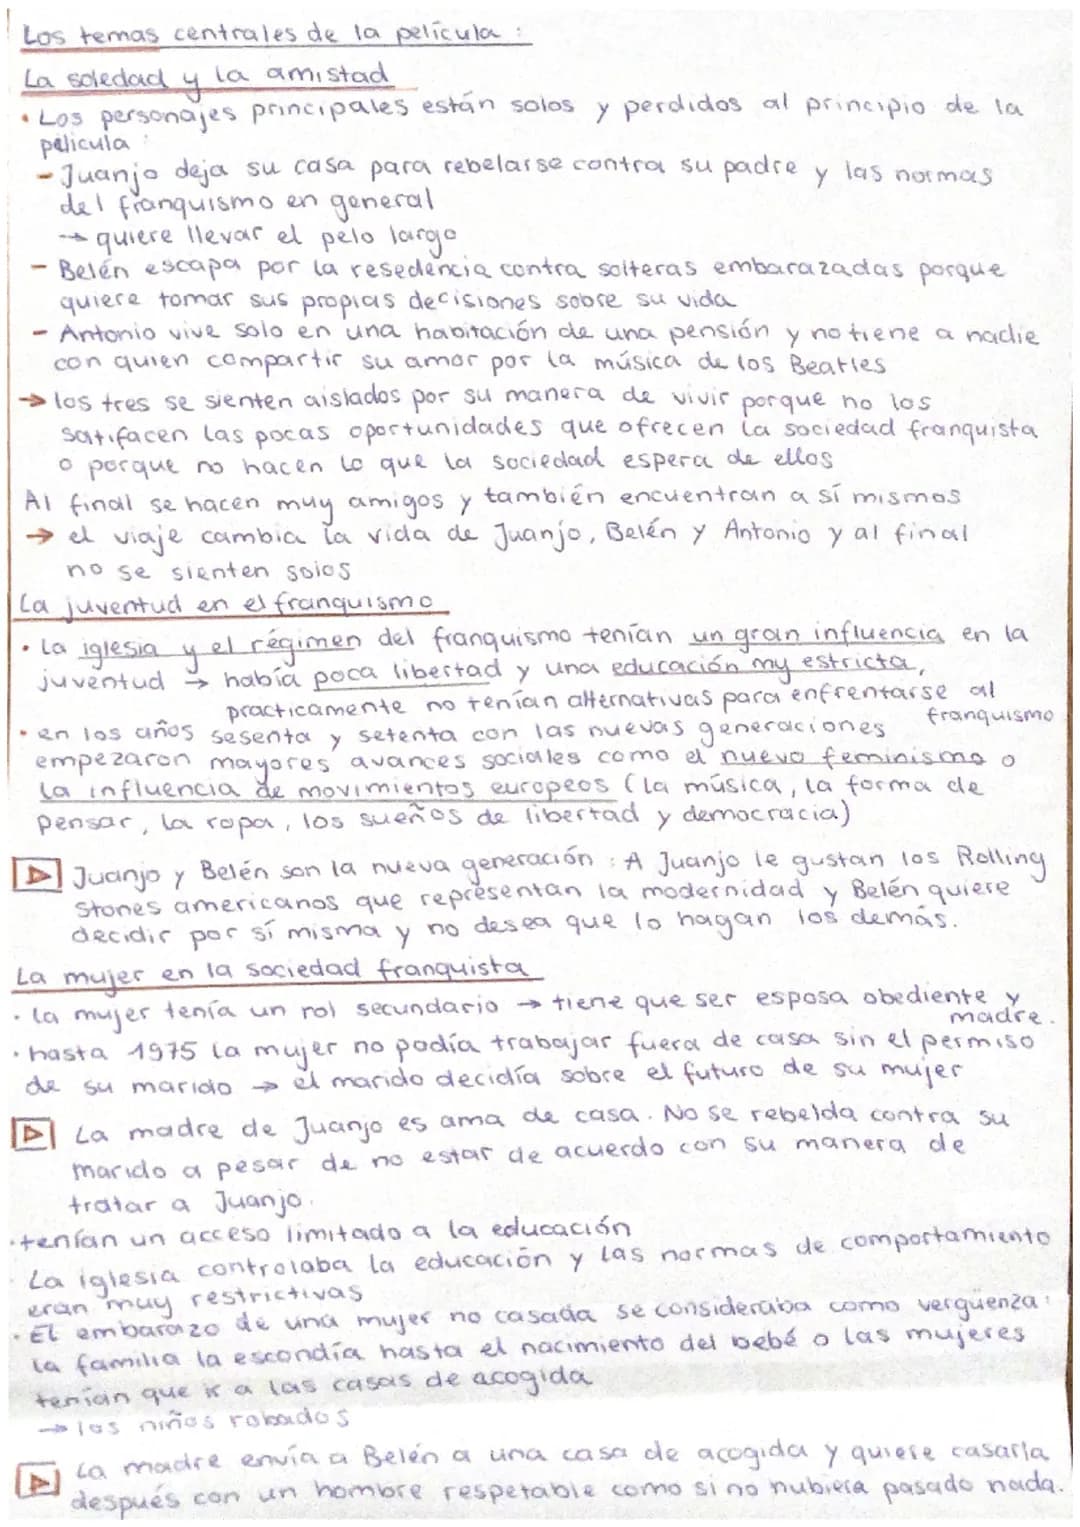 Los temas centrales de la película :
La soledad y la amistad
• Los personajes principales están solos y perdidos al principio de la
película :
- Juanjo deja su casa para rebelarse contra su padre y las normas
del franquismo en general
→ quiere llevar el pelo largo
- Belén escapa por la resedencia contra solteras embarazadas porque
quiere tomar sus propias decisiones sobre su vida
- Antonio vive solo en una habitación de una pensión y no tiene a nadie
con quien compartir su amor por la música de los Beatles
→ los tres se sienten aislados por su manera de vivir porque no los
satifacen las pocas oportunidades que ofrecen la sociedad franquista
o porque no hacen lo que la sociedad espera de ellos
Al final se hacen muy amigos y también encuentran a sí mismos
→ el viaje cambia la vida de Juanjo, Belén y Antonio y al final
no se sienten solos
La juventud en el franquismo
• la iglesia y el régimen del franquismo tenían un gran influencia en la
juventud → había poca libertad y una educación my estricta,
practicamente no tenían alternativas para enfrentarse al
franquismo
• en los años sesenta y setenta con las nuevas generaciones
empezaron mayores avances sociales como el nuevo feminismo o
la influencia de movimientos europeos (la música, la forma de
pensar, la ropa, los sueños de libertad y democracia)
Juanjo y Belén son la nueva generación : A Juanjo le gustan los Rolling
Stones americanos que représentan la modernidad y Belén quiere
decidir por sí misma y no desea que lo hagan los demás.
La mujer en la sociedad franquista
• la mujer tenía un rol secundario → tiene que ser esposa obediente y
madre.
• hasta 1975 la mujer no podía trabajar fuera de casa sin el permiso
de su marido → el marido decidía sobre el futuro de su mujer
La madre de Juanjo es ama de casa. No se rebelda contra su
marido a pesar de no estar de acuerdo con su manera de
tratar a Juanjo.
• tenían un acceso limitado a la educación
La iglesia controlaba la educación y las normas de comportamiento
eran muy restrictivas
• El embarazo de una mujer no casada se consideraba como vergüenza:
la familia la escondía hasta el nacimiento del bebé o las mujeres
tenían que ir a las casas de acogida
→ los niños robados
La madre envía a Belén a una casa de acogida y quiere casarla
después con un hombre respetable como si no hubiera pasado nada.